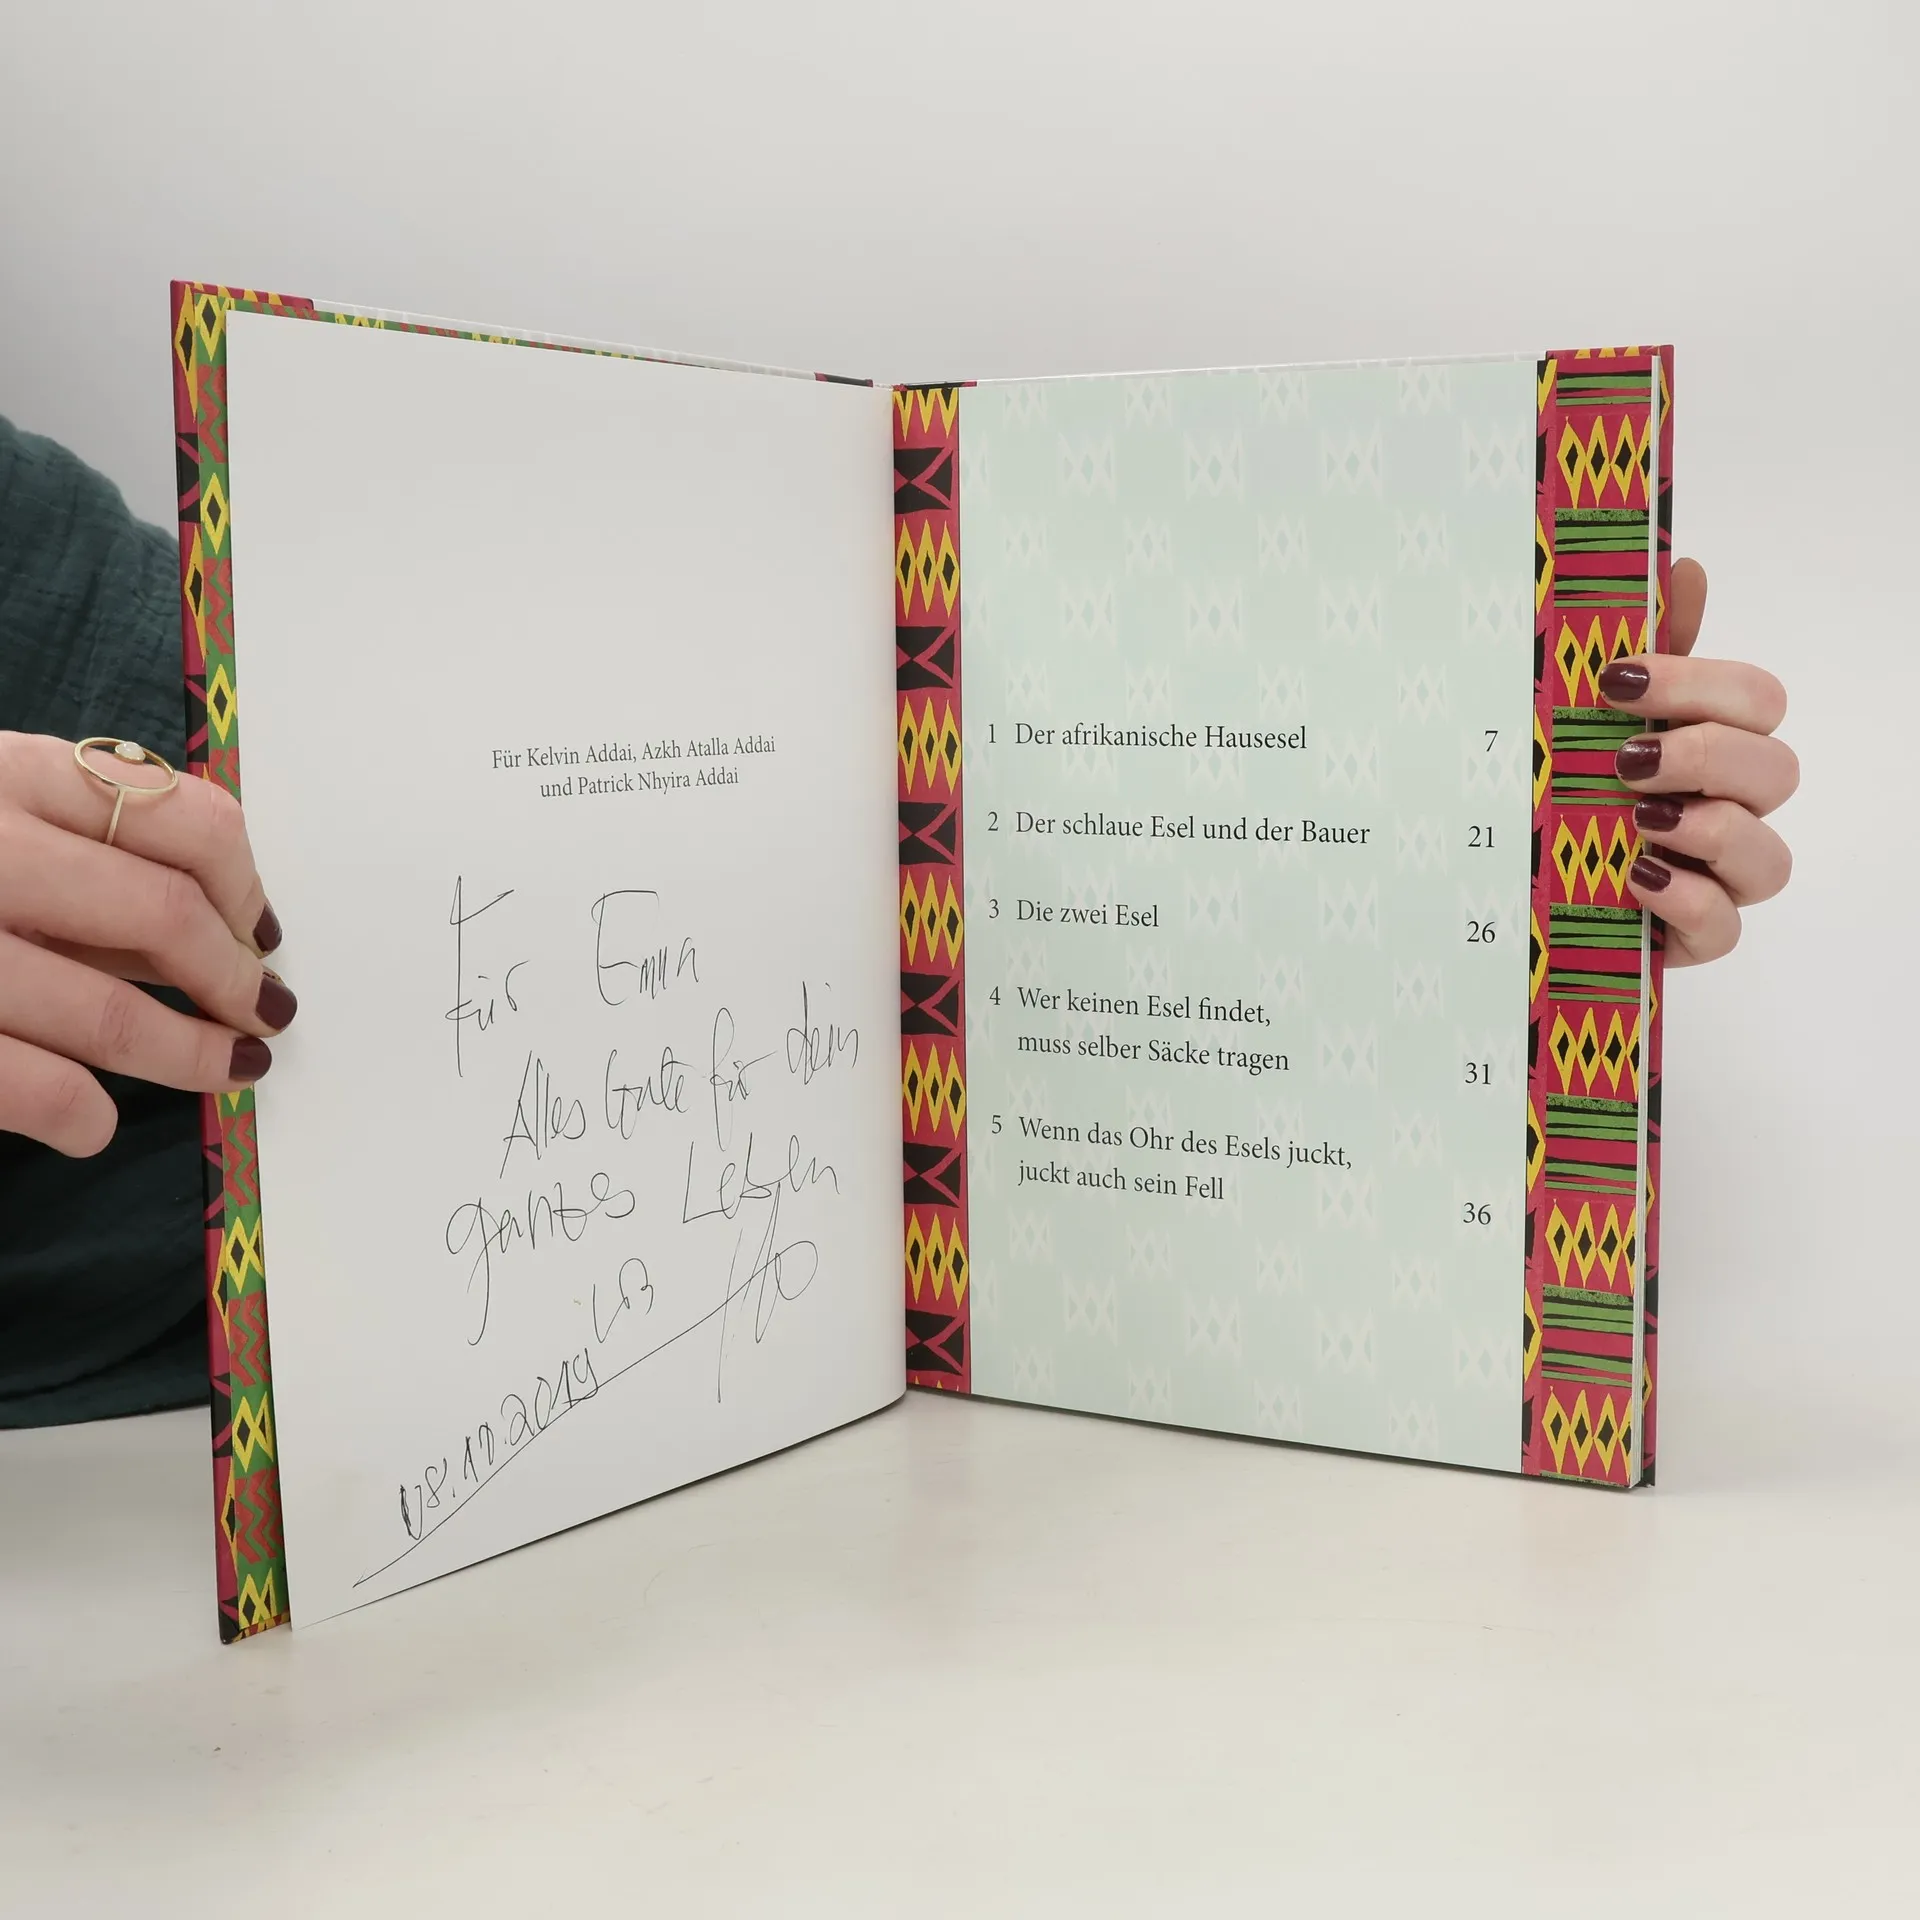 Für Kelvin Addai, Azkh Atalla Addai
und Patrick Nhyira Addai
Für Emma
Alles Gute für dein
ganzes Leben
08.10.2019
1 Der afrikanische Hausesel 7
2 Der schlaue Esel und der Bauer 21
3 Die zwei Esel 26
4 Wer keinen Esel findet,
muss selber Säcke tragen 31
5 Wenn das Ohr des Esels juckt,
juckt auch sein Fell 36